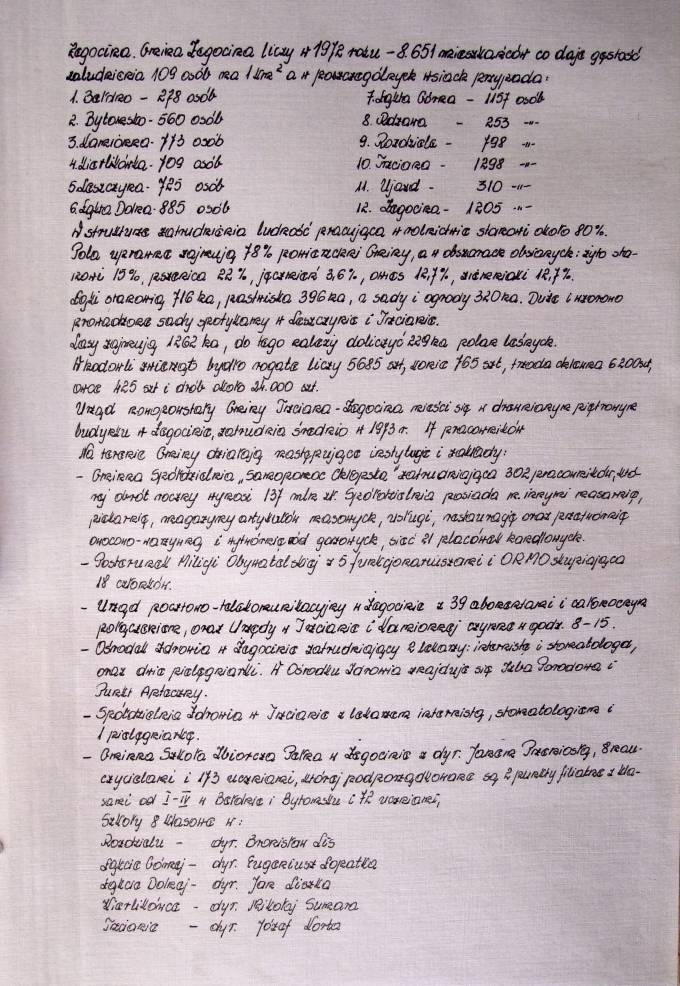 Żegocina. Gmina Żegocina liczy w 1972 roku - 8.651 mieszkańców co daje gęstość
zaludnienia 109 osób na 1 km² a w poszczególnych wsiach przypada:
1. Bełdno - 278 osób 7. Łąkta Górna - 1157 osób
2. Bytomsko - 560 osób 8. Rdzawa - 253 -"-
3. Kamionna - 773 osób 9. Rozdziele - 798 -"-
4. Kierlikówka - 709 osób 10. Trzciana - 1298 -"-
5. Leszczyna - 725 osób 11. Ujazd - 310 -"-
6. Łąkta Dolna - 885 osób 12. Żegocina - 1205 -"-
W strukturze zatrudnienia ludność pracująca w rolnictwie stanowi około 80%.
Pola uprawne zajmują 78% powierzchni Gminy, a w obszarach obsianych: żyto sta-
nowi 15%, pszenica 22%, jęczmień 3,6%, owies 12,7%, ziemniaki 12,7%.
Łąki stanowią 716 ha, pastwiska 396 ha, a sady i ogrody 320 ha. Duże i wzorowo
prowadzone sady spotykamy w Leszczynie i Trzcianie.
Lasy zajmują 1262 ha, do tego należy doliczyć 229 ha polan leśnych.
W hodowli zwierząt bydło rogate liczy 5685 szt, konie 765 szt, trzoda chlewna 6200 szt,
owce 425 szt i drób około 24.000 szt.
Urząd nowopowstałej Gminy Trzciana-Żegocina mieści się w drewnianym piętrowym
budynku w Żegocinie, zatrudnia średnio w 1973 r. 17 pracowników
Na terenie Gminy działają następujące instytucje i zakłady:
- Gminna Spółdzielnia „Samopomoc Chłopska" zatrudniająca 302 pracowników, któ-
rej obrót roczny wynosi 137 mln zł. Spółdzielnia posiada m. innymi masarnię,
piekarnię, magazyny artykułów masowych, usługi, restaurację oraz przetwórnię
owocowo-warzywną i wytwórnię wód gazowych, sieć 21 placówek handlowych.
- Posterunek Milicji Obywatelskiej z 5 funkcjonariuszami i ORMO skupiająca
18 członków.
- Urząd pocztowo-telekomunikacyjny w Żegocinie z 39 abonentami i całonocnym
połączeniem, oraz Urzędy w Trzcianie i Kamionnej czynne w godz. 8-15.
- Ośrodek Zdrowia w Żegocinie zatrudniający 2 lekarzy: internistę i stomatologa,
oraz dwie pielęgniarki. W Ośrodku Zdrowia znajduje się Izba Porodowa i
Punkt Apteczny.
- Spółdzielnia Zdrowia w Trzcianie z lekarzem internistą, stomatologiem i
1 pielęgniarkę.
- Gminna Szkoła Zbiorcza Pełna w Żegocinie z dyr. Janem Przeniosłą, 8 nau-
czycielami i 173 uczniami, której podporządkowane są 2 punkty filialne z kla-
sami od I-IV w Bełdnie i Bytomsku i 72 uczniami,
Szkoły 8 klasowe w:
Rozdzielu - dyr. Bronisław Lis
Łąkcie Górnej - dyr. Eugeniusz Łopatka
Łąkcie Dolnej - dyr. Jan Liszka
Kierlikówce - dyr. Mikołaj Sumara
Trzcianie - dyr. Józef Korta